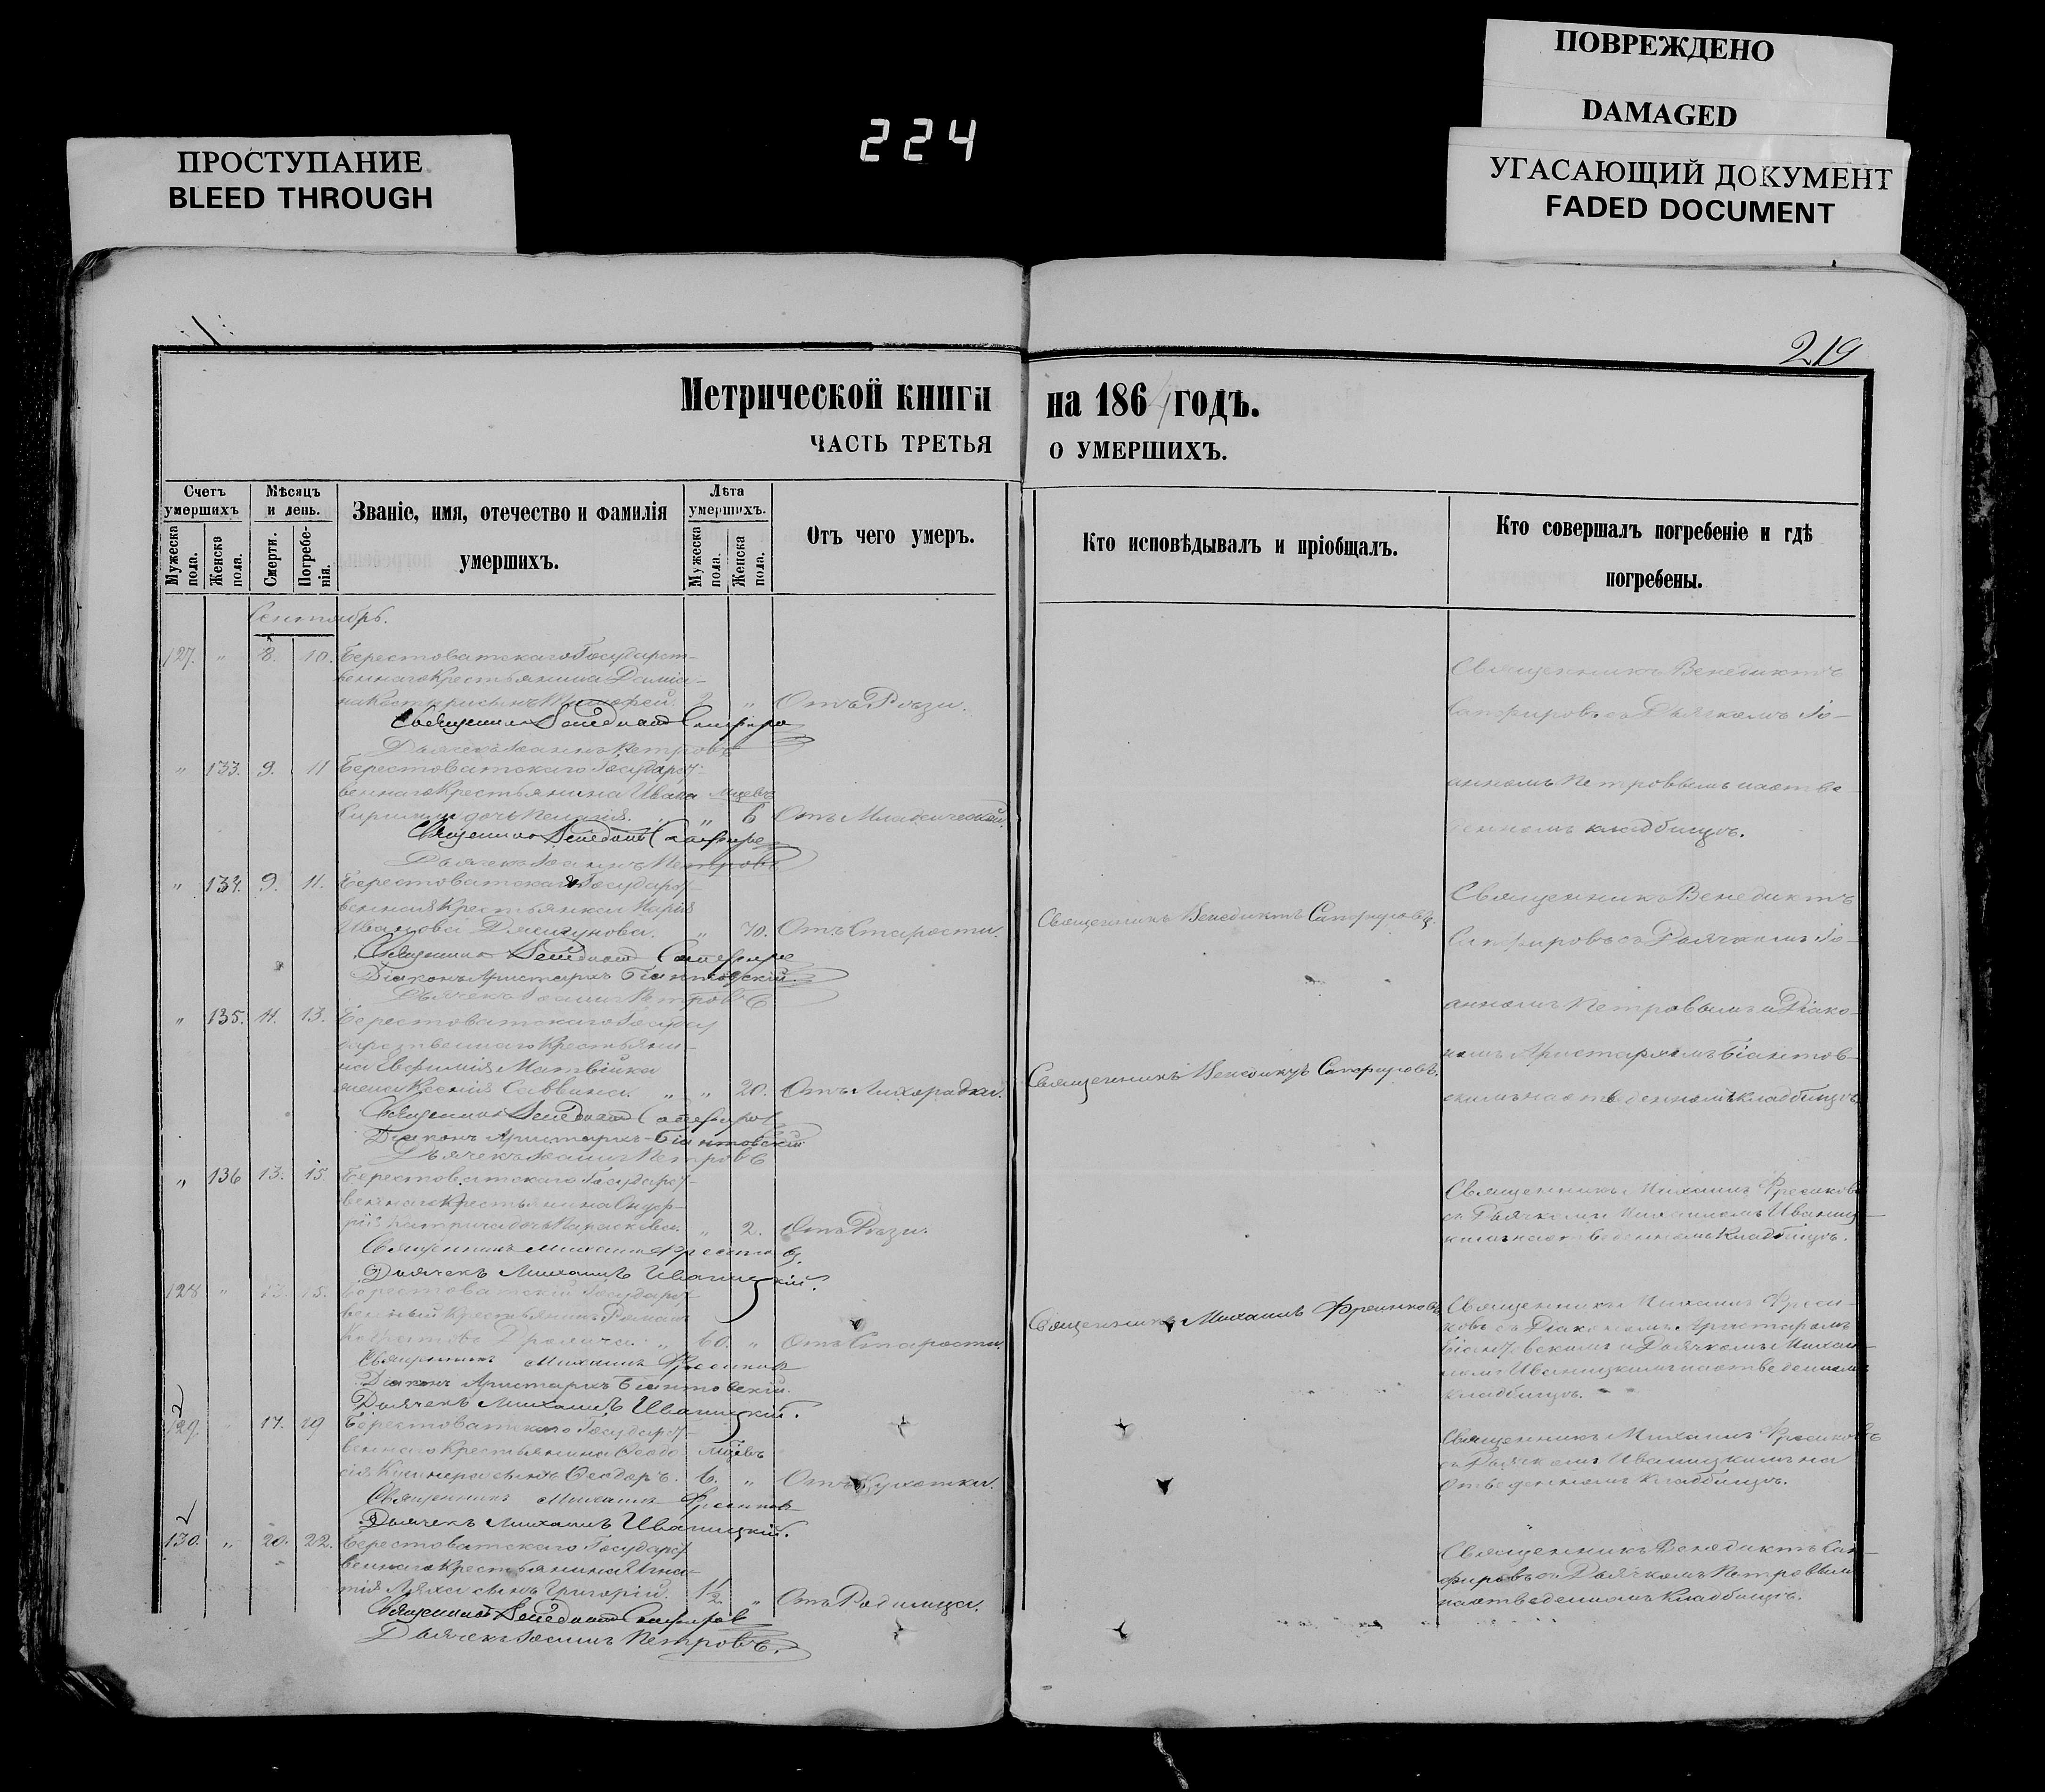 ПОВРЕЖДЕНО
DAMAGED
224
ПРОСТУПАНИЕ
BLEED THROUGH
УГАСАЮЩИЙ ДОКУМЕНТ
FADED DOCUMENT
219
Метрической книги на 1864 годъ.
ЧАСТЬ ТРЕТЬЯ О УМЕРШИХЪ.
Счетъ умершихъ
Мужеска пола.
Женска пола.
Мѣсяцъ и день.
Смерти.
Погребенія.
Званіе, имя, отечество и фамилія умершихъ.
Лѣта умершихъ.
Мужеска пола.
Женска пола.
Отъ чего умеръ.
Кто исповѣдывалъ и пріобщалъ.
Кто совершалъ погребеніе и гдѣ погребены.
Сентябрь.
127. " 8. 10. Берестоватскаго Государст-
веннаго Крестьянина Даміа-
на сынъ Тимофей. 2 " Отъ Рѣзи.
Священникъ Венедиктъ Сапфировъ
Дьячекъ Іоаннъ Петровъ
Священникъ Венедиктъ
Сапфировъ съ Дьячкомъ Іо-
анномъ Петровымъ на отве-
денномъ кладбищѣ.
" 133. 9. 11 Берестоватскаго Государст-
веннаго Крестьянина Ивана мѣсяцъ
дочь Пелагія. " 6 Отъ Младенческой.
Священникъ Венедиктъ Сапфировъ
Дьячекъ Іоаннъ Петровъ
" 134. 9. 11. Берестоватская Государст-
венная Крестьянка Марія
Иванова " 70. Отъ Старости.
Священникъ Венедиктъ Сапфировъ
Діаконъ Аристархъ Біантовскій.
Дьячекъ Іоаннъ Петровъ
Священникъ Венедиктъ Сапфировъ.
Священникъ Венедиктъ
Сапфировъ съ Дьячкомъ Іо-
анномъ Петровымъ и Діако-
номъ Аристархомъ Біантов-
скимъ на отведенномъ кладбищѣ
" 135. 11. 13. Берестоватскаго Госуда-
рственнаго Крестьяни-
на Евфимія Матвійка
жена Ксенія Саввина. " " 20. Отъ Лихорадки.
Священникъ Венедиктъ Сапфировъ
Діаконъ Аристархъ Біантовскій
Дьячекъ Іоаннъ Петровъ
Священникъ Венедиктъ Сапфировъ.
" 136 13. 15. Берестоватскаго Государст-
веннаго Крестьянина
дочь Параскева. " 2. Отъ Рѣзи.
Священникъ Михаилъ
Дьячекъ Михаилъ Иваницкій.
Священникъ Михаилъ
съ Дьячкомъ Михаиломъ Иваниц-
кимъ на отведенномъ Кладбищѣ.
128 " 13. 15. Берестоватскій Государст-
венный Крестьянинъ Романъ
" 60. " Отъ Старости.
Священникъ Михаилъ
Діаконъ Аристархъ Біантовскій.
Дьячекъ Михаилъ Иваницкій.
Священникъ Михаилъ
Священникъ Михаилъ
съ Діакономъ Аристархомъ
Біантовскимъ и Дьячкомъ Михаи-
ломъ Иваницкимъ на отведенномъ
кладбищѣ.
129. " 17. 19 Берестоватскаго Государст-
веннаго Крестьянина Ѳеодо- мѣсяцъ
сія сынъ Ѳеодоръ. 6. " Отъ Сухотки.
Священникъ Михаилъ
Дьячекъ Михаилъ Иваницкій.
Священникъ Михаилъ
съ Дьячкомъ Иваницкимъ на
отведенномъ кладбищѣ.
130. " 20. 22. Берестоватскаго Государст-
веннаго Крестьянина Игна-
тія Ляха сынъ Григорій. 1½ " Отъ Родимца.
Священникъ Венедиктъ Сапфировъ
Дьячекъ Іоаннъ Петровъ.
Священникъ Венедиктъ Сап-
фировъ съ Дьячкомъ Петровымъ
на отведенномъ Кладбищѣ.